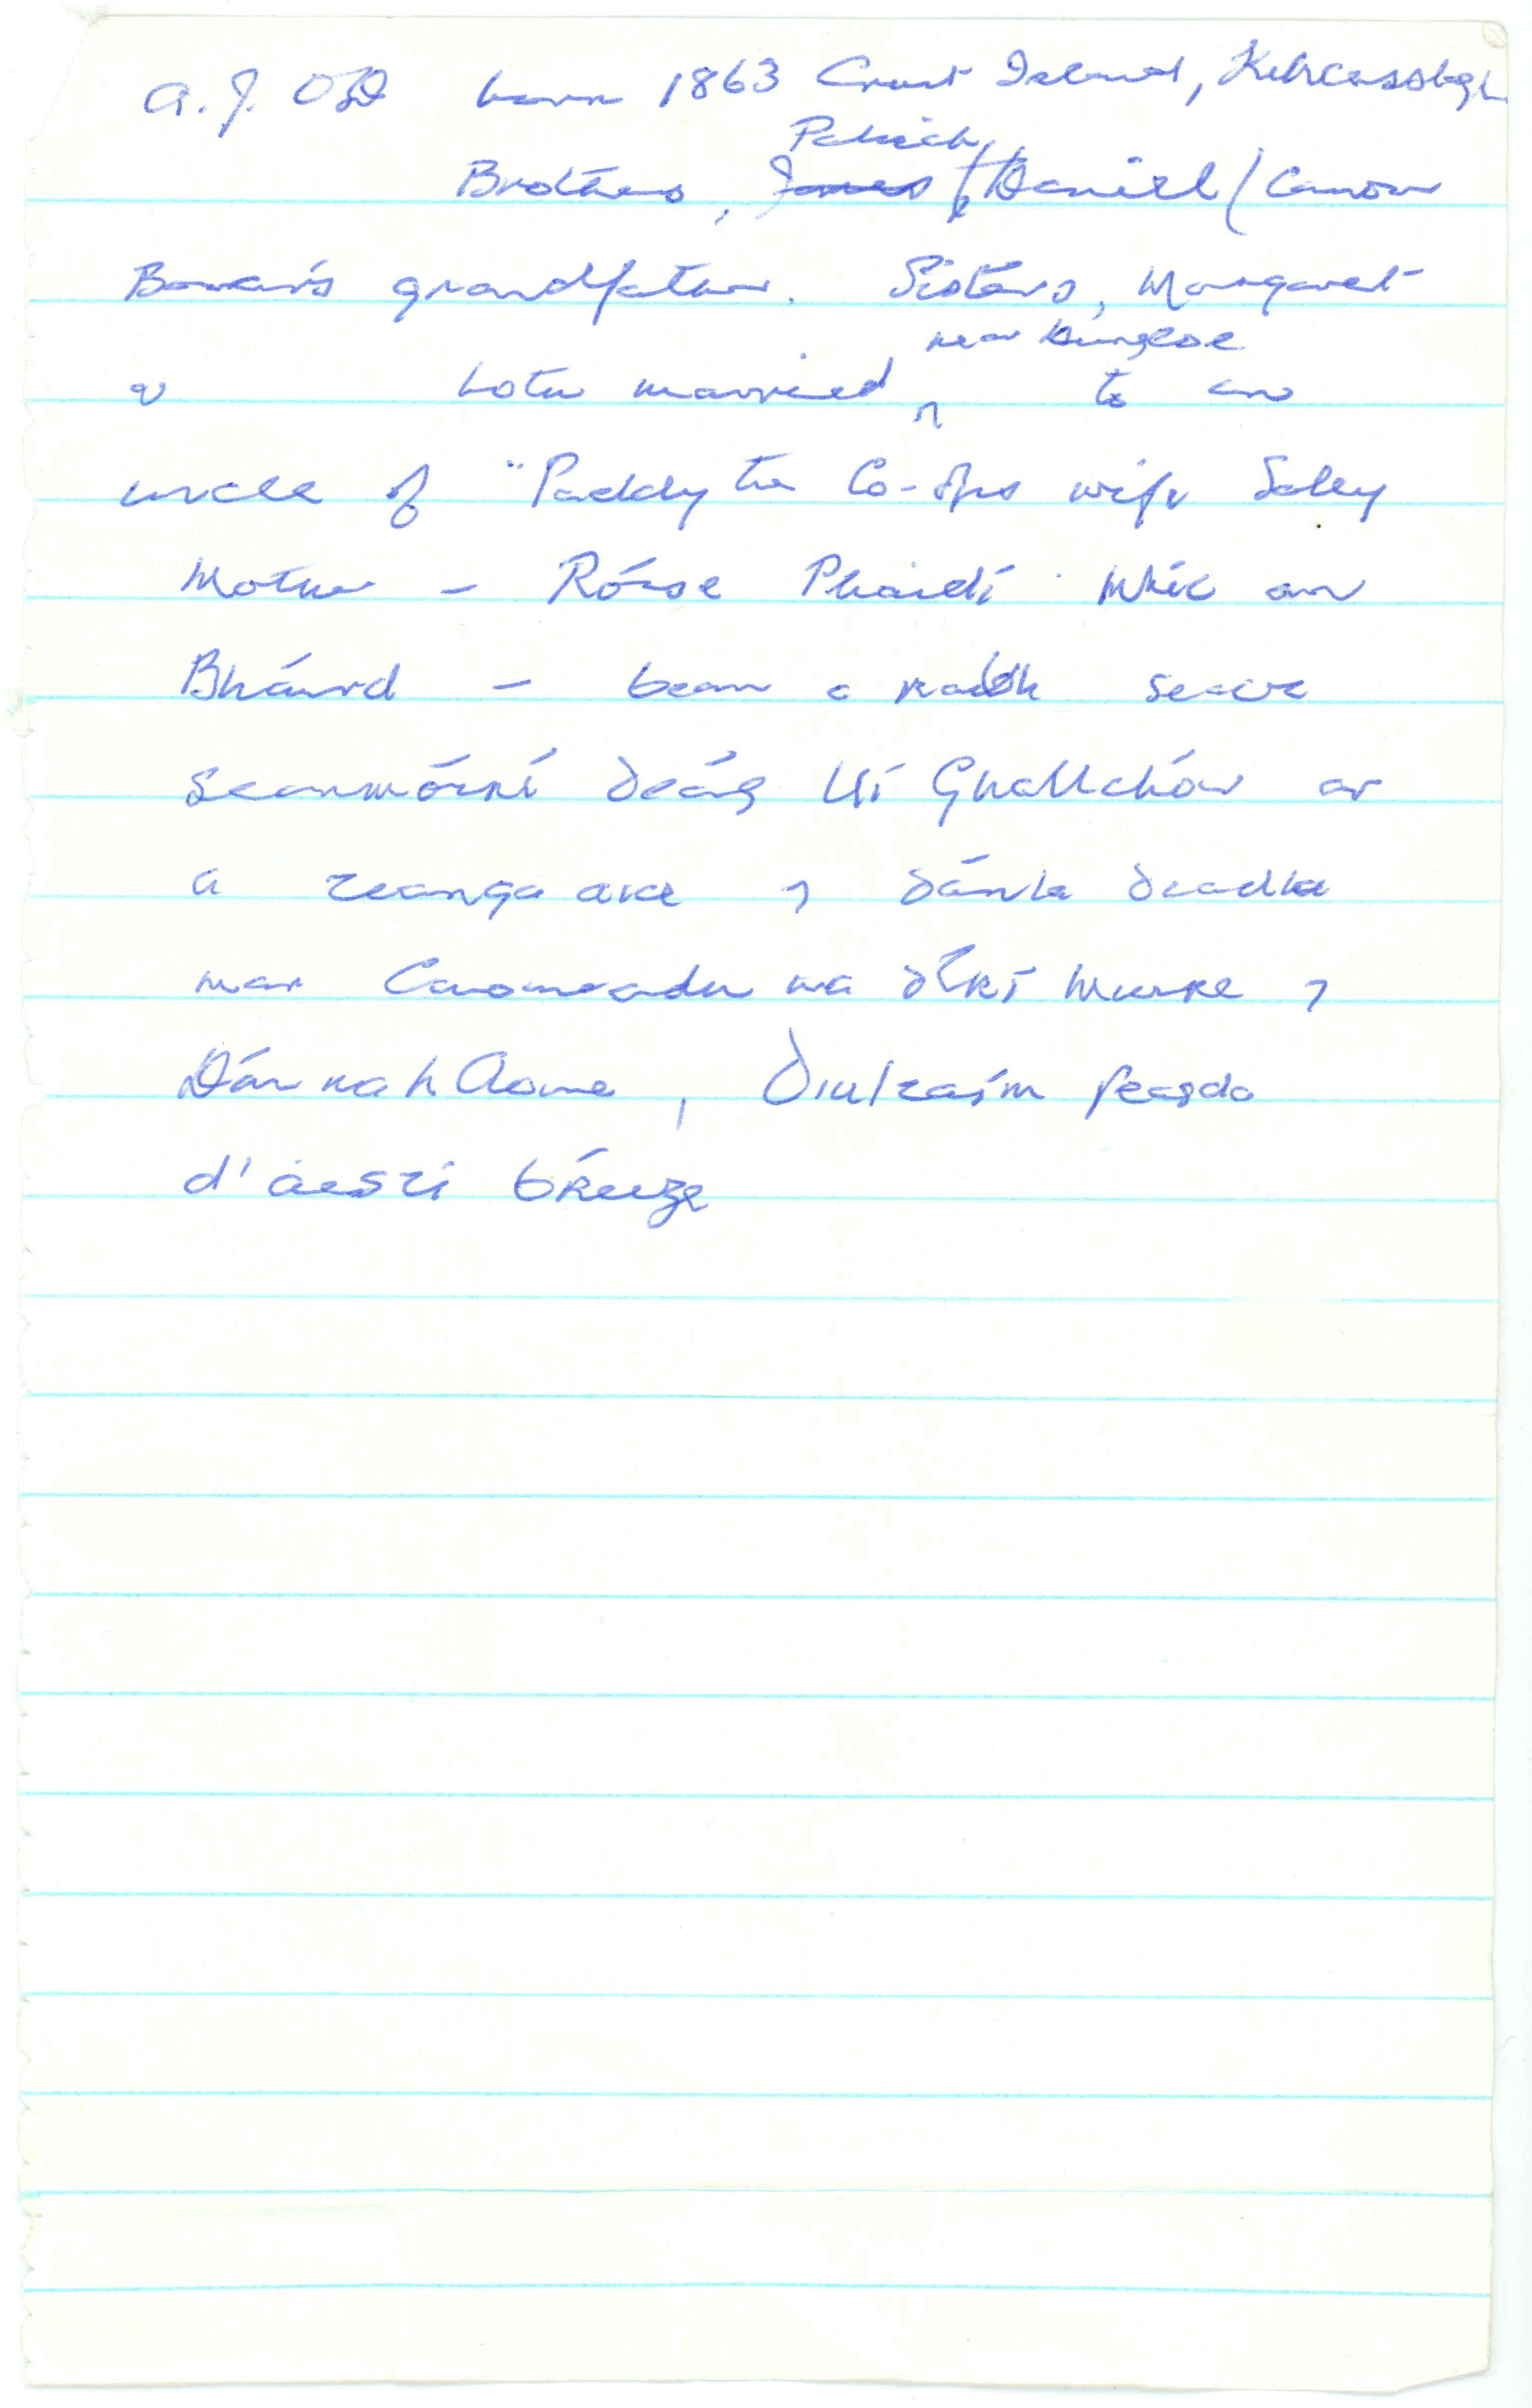 A.J. OD born 1863 Cruit Island, Kilcasslagh
Patrick
Brothers, James / Daniel / Canon
Bonar's grandfather. Sisters, Margaret
near Dungloe
& both married to an
uncle of "Paddy the Co-Ops wife Sally
Mother - Róise Pháidí Mhic an
Bháird - bean a raibh
seanmóirí Uí Ghallchóir ar
a teanga aici ⁊ dánta diadha
mar Caoineadh na dTrí Muire ⁊
Dán na hAoine, Diultaím feasda
d'aisti bréige